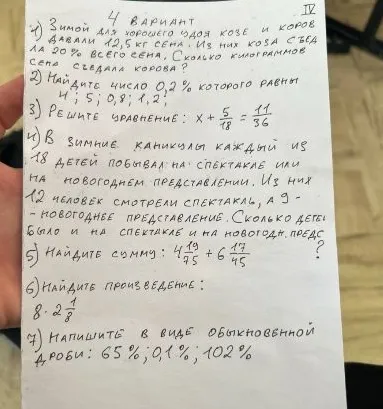 IV
4 ВАРИАНТ
1) ЗИМОЙ ДЛЯ ХОРОШЕГО УДОЯ КОЗЕ И КОРОВ
ДАВАЛИ 12,5 КГ СЕНА. ИЗ НИХ КОЗА СЪЕД
ЛА 20% ВСЕГО СЕНА. СКОЛЬКО КИЛОГРАММОВ
СЕНА СЪЕДАЛА КОРОВА?
2) НАЙДИТЕ ЧИСЛО 0,2% КОТОРОГО РАВНЫ
4; 5; 0,8; 1,2;
3) РЕШИТЕ УРАВНЕНИЕ: x + 5/18 = 11/36
4) В ЗИМНИЕ КАНИКУЛЫ КАЖДЫЙ ИЗ
18 ДЕТЕЙ ПОБЫВАЛ НА СПЕКТАКЛЕ ИЛИ
НА НОВОГОДНЕМ ПРЕДСТАВЛЕНИИ. ИЗ НИХ
12 ЧЕЛОВЕК СМОТРЕЛИ СПЕКТАКЛЬ, А 9 -
- НОВОГОДНЕЕ ПРЕДСТАВЛЕНИЕ. СКОЛЬКО ДЕТЕЙ
БЫЛО И НА СПЕКТАКЛЕ И НА НОВОГОДН. ПРЕДС
?
5) НАЙДИТЕ СУММУ: 4 19/75 + 6 17/45
6) НАЙДИТЕ ПРОИЗВЕДЕНИЕ:
8 · 2 1/8
7) НАПИШИТЕ В ВИДЕ ОБЫКНОВЕННОЙ
ДРОБИ: 65%; 0,1%; 102%